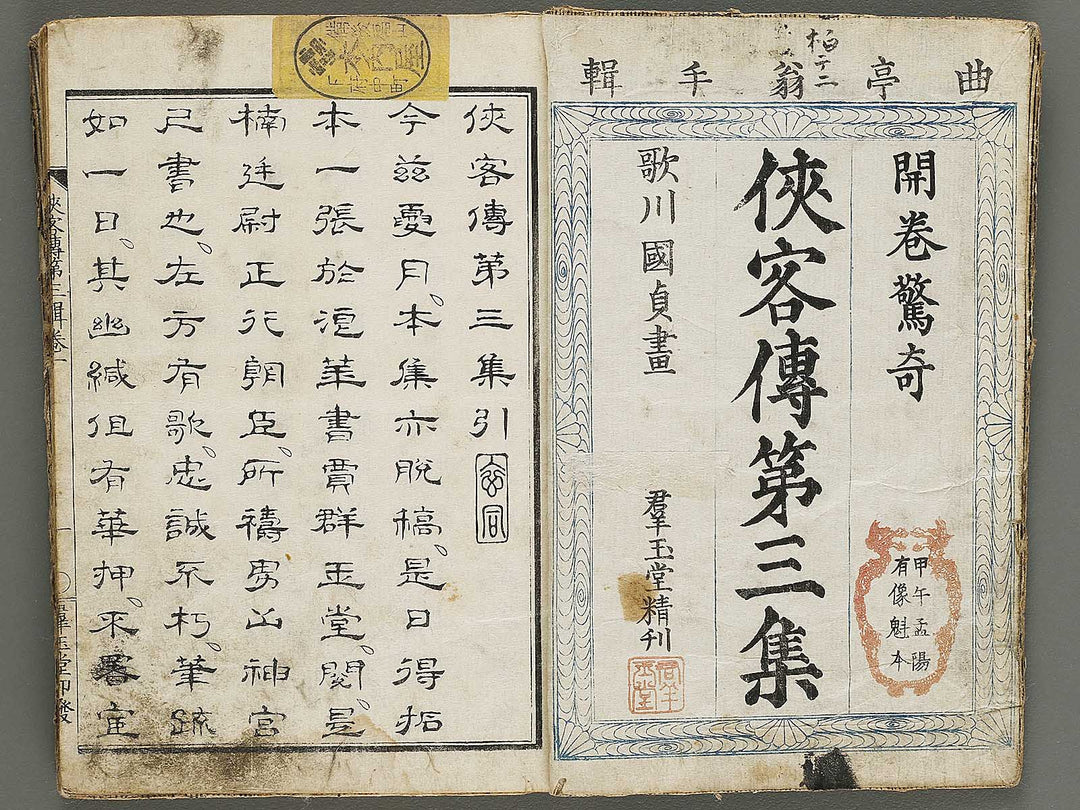 曲亭翁手輯
開卷驚奇
俠客傳第三集
歌川國貞畫
羣玉堂精刋
甲午孟陽
有像魁本
俠客傳第三集引
今茲憂月。本集亦脫稿。是日得拓
本一張於浪華書賈群玉堂。閱是
楠廷尉正行朝臣。所禱男山神宮
之書也。左方有歌。忠誠不朽。筆跡
如一日。其幽緘但有華押。不署官
俠客傳第三輯卷一
一
羣玉堂印發